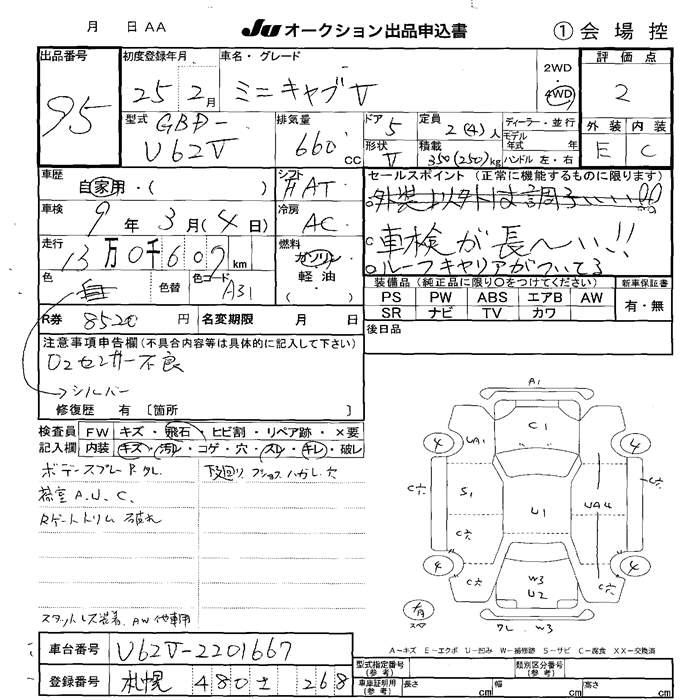 月 日 AA JU オークション出品申込書 ①会場控
出品番号 初度登録年月 車名・グレード 評価点
95 25 2月 ミニキャブV 2WD 4WD 2
型式 GBD- U62V 排気量 660 cc ドア 5 定員 2(4)人 ディーラー・並行 外装 内装
形状 V 積載 350(250)kg モデル年式 年 ハンドル 左・右 E C
車歴 自家用・( ) シフト FAT セールスポイント (正常に機能するものに限ります)
外装以外は調子いい!!
車検 9年 3月(4日) 冷房 AC 車検が長〜い!!
走行 13万0千607km 燃料 ガソリン 軽油 ( ) ルーフキャリアがついてる
色 色替 色コード A31 装備品 (純正品に限り○をつけてください) 新車保証書
PS PW ABS エアB AW 有・無
SR ナビ TV カワ
R券 8520円 名変期限 月 日 後日品
注意事項申告欄(不具合内容等は具体的に記入して下さい)
O2センサー不良
シルバー
修復歴 有 〔箇所 〕
検査員 FW キズ・飛石・ヒビ割・リペア跡・×要
記入欄 内装 キズ・汚レ・コゲ・穴・スレ・キレ・破レ
ボデースプレーP.クレ. 下廻り
荷室 A.U.C.
Rゲートトリム 破れ
スタットレス装着、AW他車用
A1
C1
4 UA1 4
C穴 S1 U1 UA4
C穴
4 C穴 W3 U2 C穴 4
有 スペア
クレ W3
A−キズ E−エクボ U−凹み W−補修跡 S−サビ C−腐食 XX−交換済
車台番号 U62V-2201667 型式指定番号(参考) 類別区分番号(参考)
登録番号 札幌 480 ま 268 車庫証明用(参考) 長さ cm 幅 cm 高さ cm